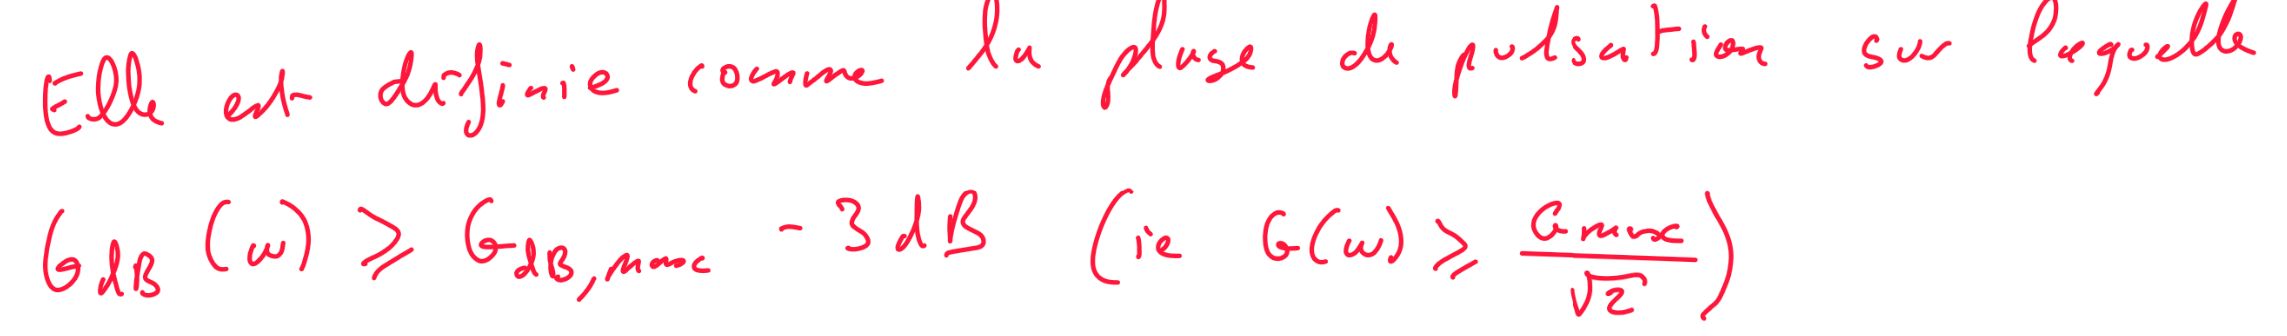 Elle est définie comme la plage de pulsation sur laquelle
G_{dB}(ω) ⩾ G_{dB,max} - 3 dB (ie G(ω) ⩾ \frac{G_{max}}{\sqrt{2}})